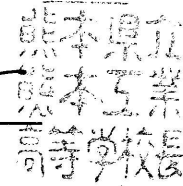 熊本県立
熊本工業
高等学校長